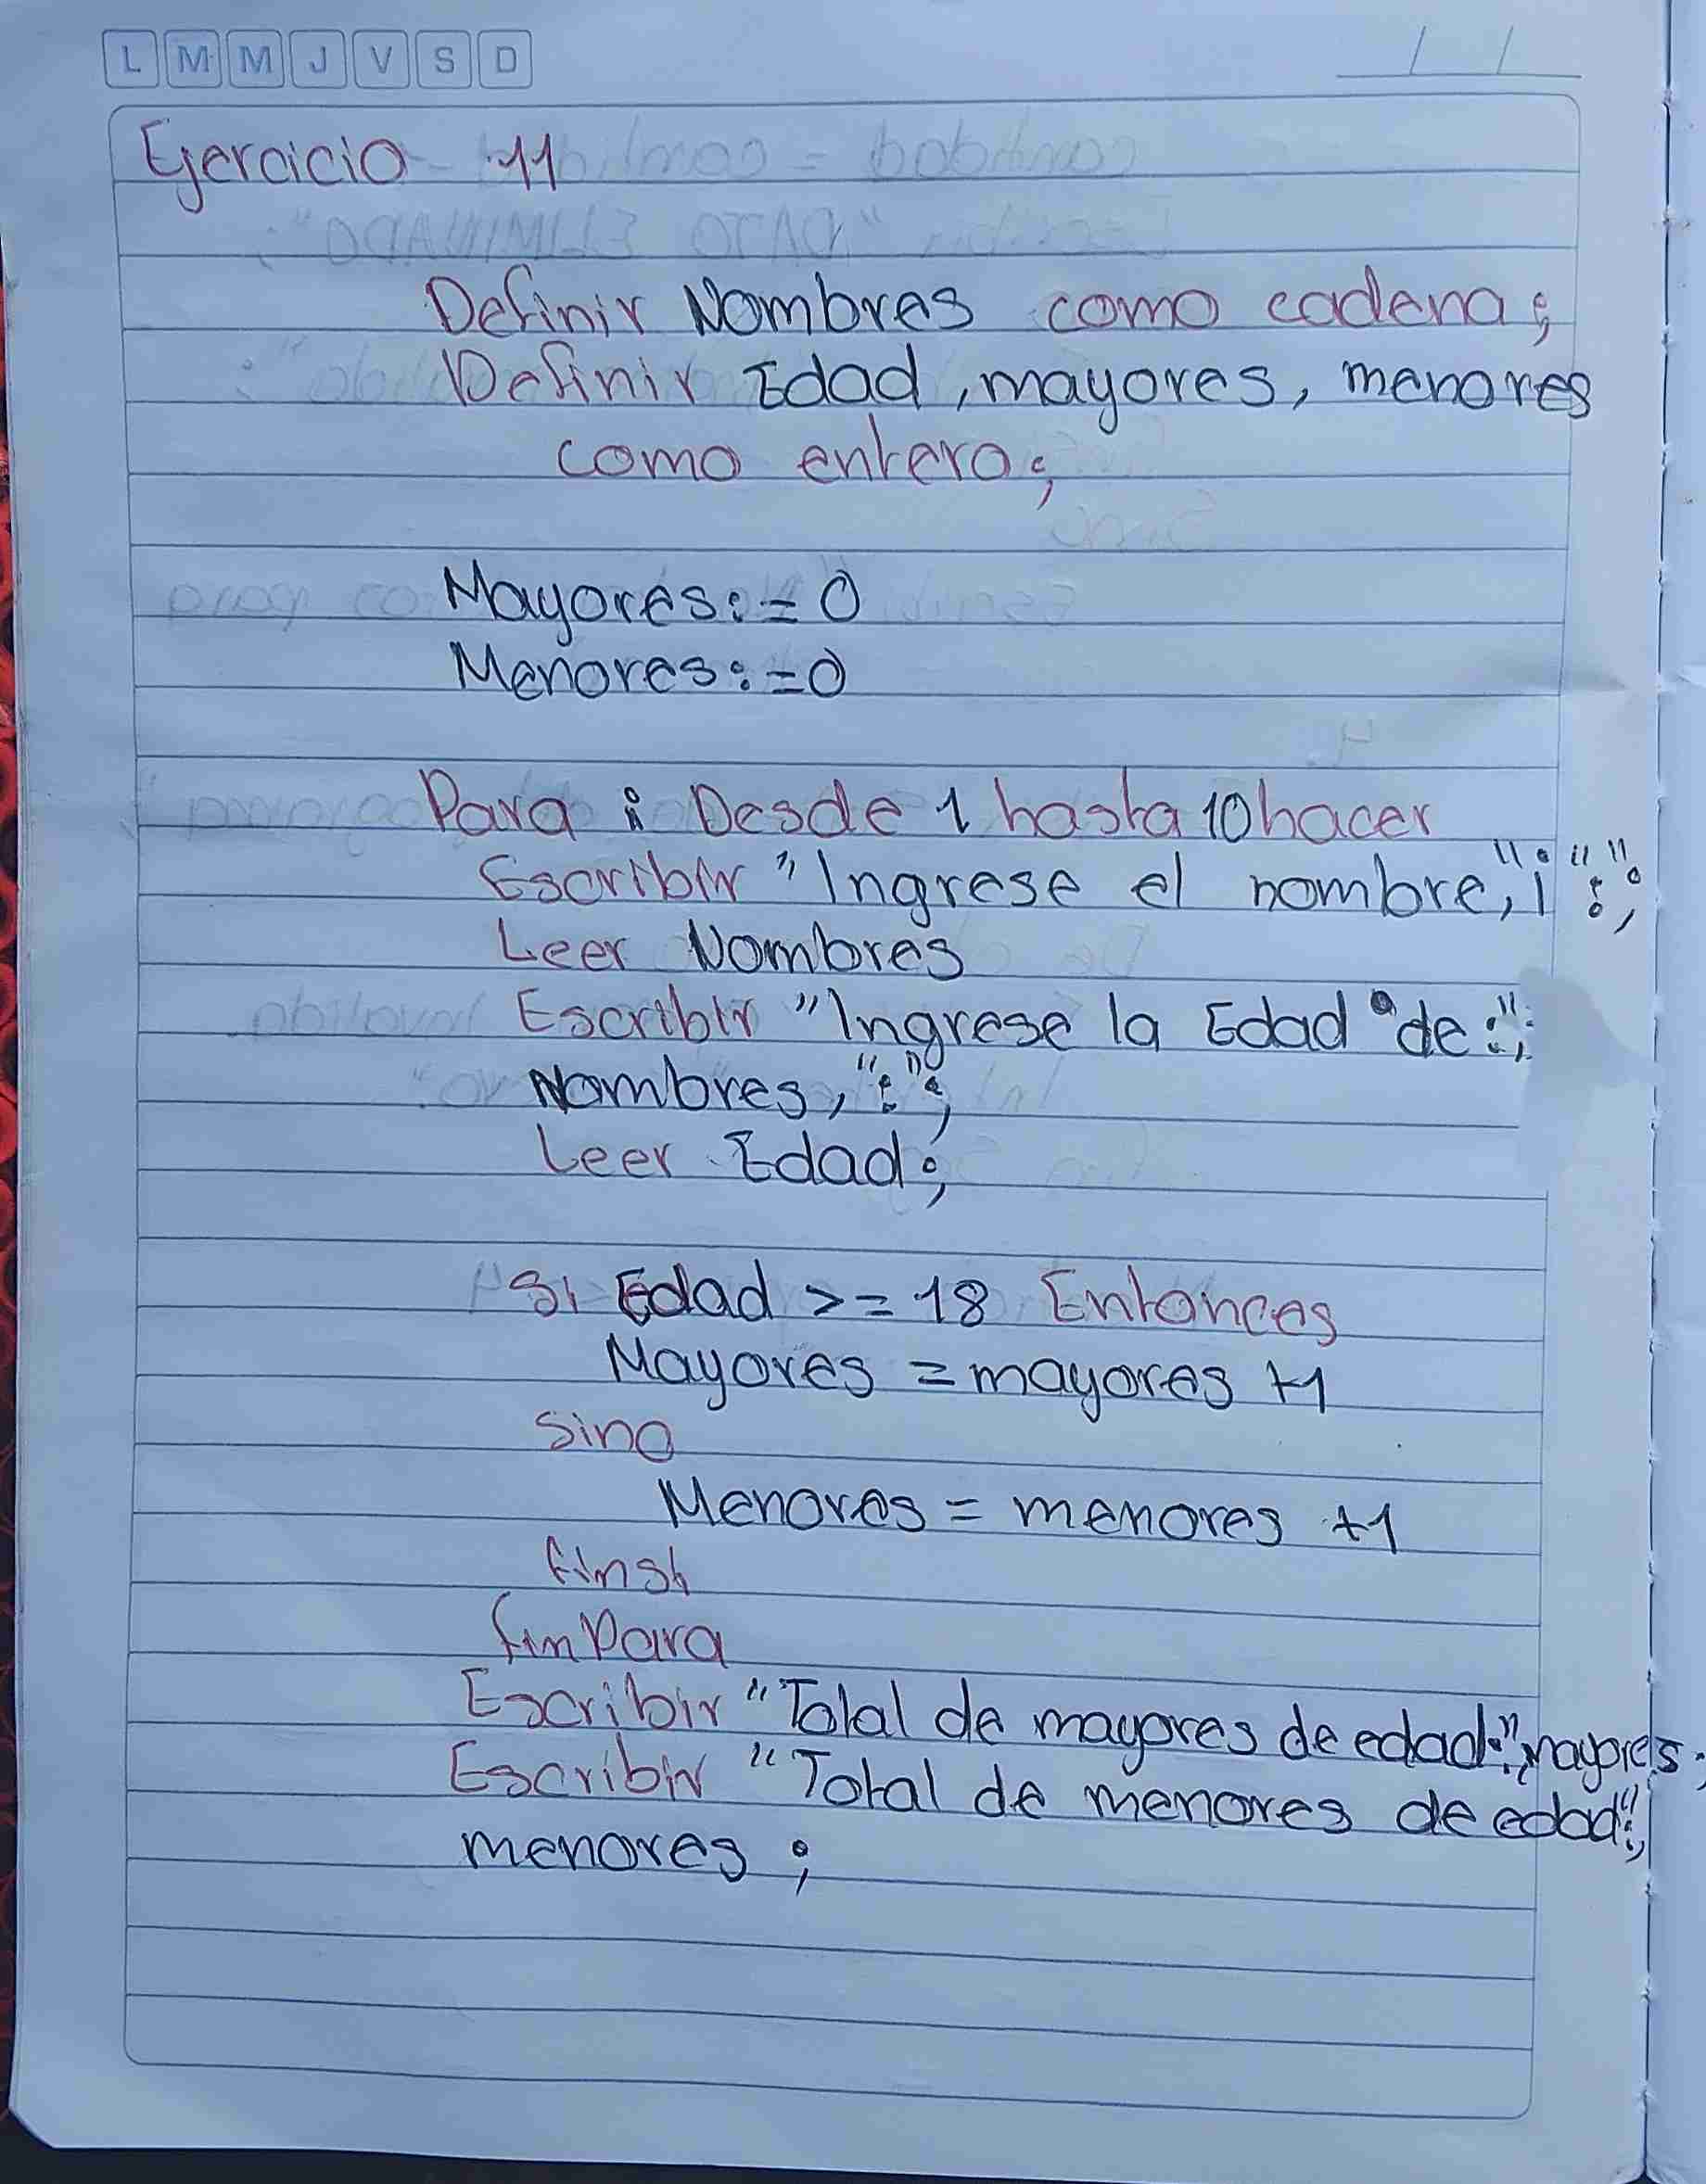 L M M J V S D
Ejercicio 11
Definir Nombres como cadena;
Definir Edad, mayores, menores
como entero;
Mayores:=0
Menores:=0
Para i Desde 1 hasta 10 hacer
Escribir "Ingrese el nombre," i ":";
Leer Nombres
Escribir "Ingrese la Edad de:";
Nombres, ":";
Leer Edad;
Si Edad >= 18 Entonces
Mayores = mayores +1
Sino
Menores = menores +1
finsi
finPara
Escribir "Total de mayores de edad:", mayores;
Escribir "Total de menores de edad:",
menores;